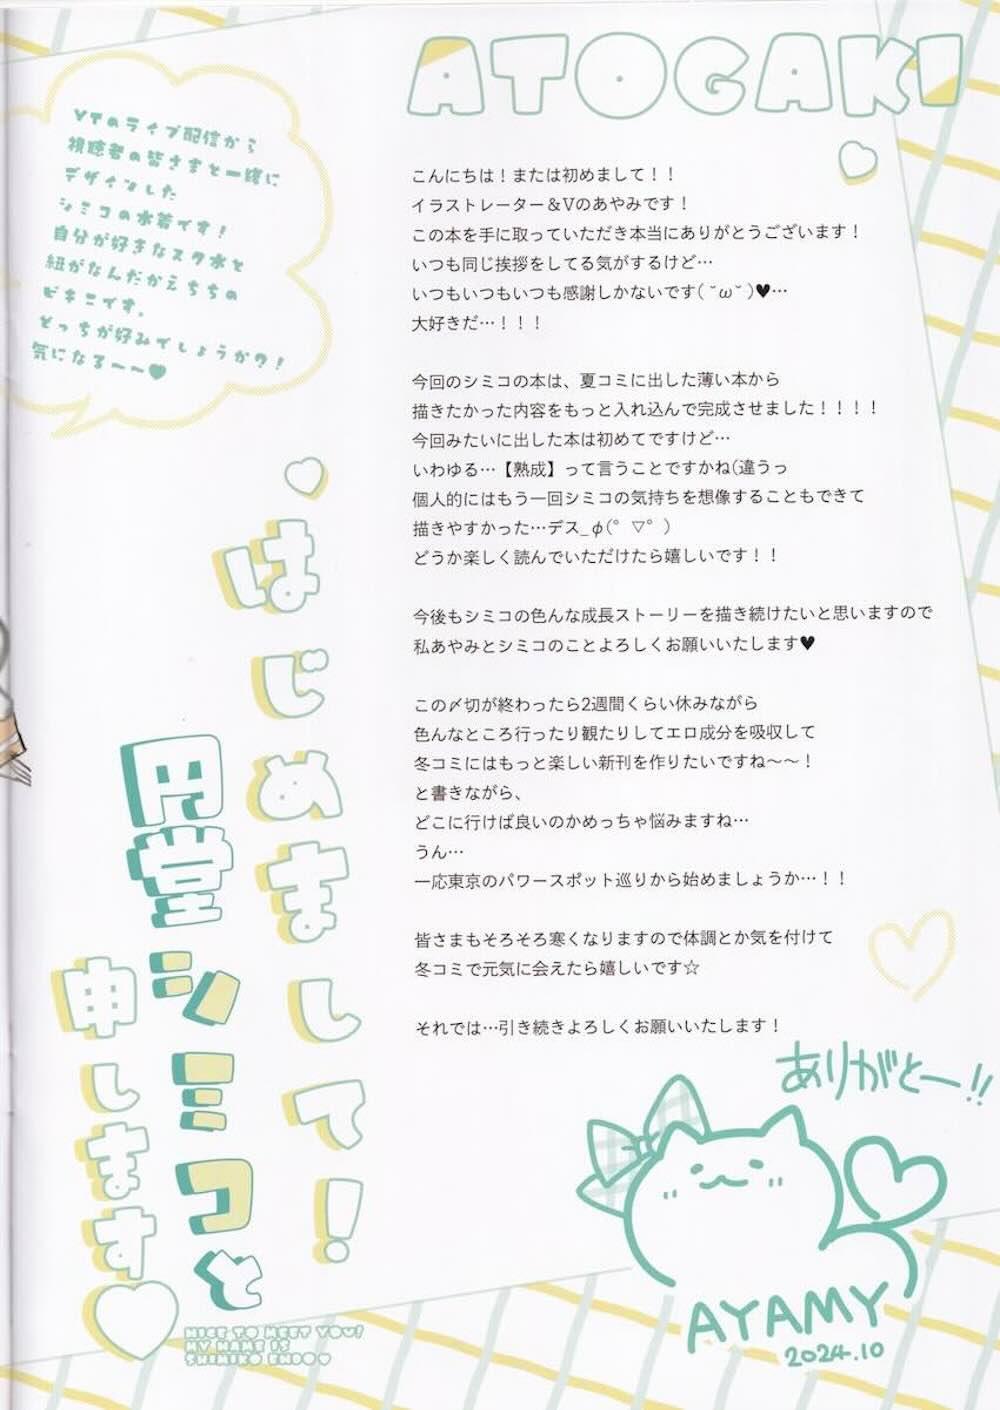 ATOGAKI
YTのライブ配信から
視聴者の皆さまと一緒に
デザインした
シミコの水着です！
自分が好きなスク水と
紐がなんだかえちちの
ビキニです。
どっちが好みでしょうかの？！
気になる〜〜♥
こんにちは！または初めまして！！
イラストレーター＆Vのあやみです！
この本を手に取っていただき本当にありがとうございます！
いつも同じ挨拶をしてる気がするけど…
いつもいつもいつも感謝しかないです( ˘ω˘ )♥…
大好きだ…！！！
今回のシミコの本は、夏コミに出した薄い本から
描きたかった内容をもっと入れ込んで完成させました！！！！
今回みたいに出した本は初めてですけど…
いわゆる…【熟成】って言うことですかね(違うっ
個人的にはもう一回シミコの気持ちを想像することもできて
描きやすかった…デス_φ(ﾟ▽ﾟ)
どうか楽しく読んでいただけたら嬉しいです！！
今後もシミコの色んな成長ストーリーを描き続けたいと思いますので
私あやみとシミコのことよろしくお願いいたします♥
この〆切が終わったら2週間くらい休みながら
色んなところ行ったり観たりしてエロ成分を吸収して
冬コミにはもっと楽しい新刊を作りたいですね〜〜！
と書きながら、
どこに行けば良いのかめっちゃ悩みますね…
うん…
一応東京のパワースポット巡りから始めましょうか…！！
皆さまもそろそろ寒くなりますので体調とか気を付けて
冬コミで元気に会えたら嬉しいです☆
それでは…引き続きよろしくお願いいたします！
はじめまして！
円堂シミコと
申します♥
NICE TO MEET YOU!
MY NAME IS
SHIMIKO ENDO♥
ありがとー!!
AYAMY
2024.10